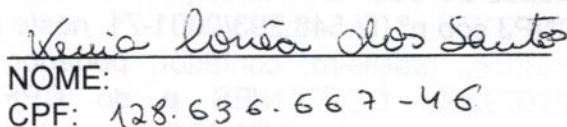 Kenia Corrêa dos Santos
NOME:
CPF: 128.636.667-46